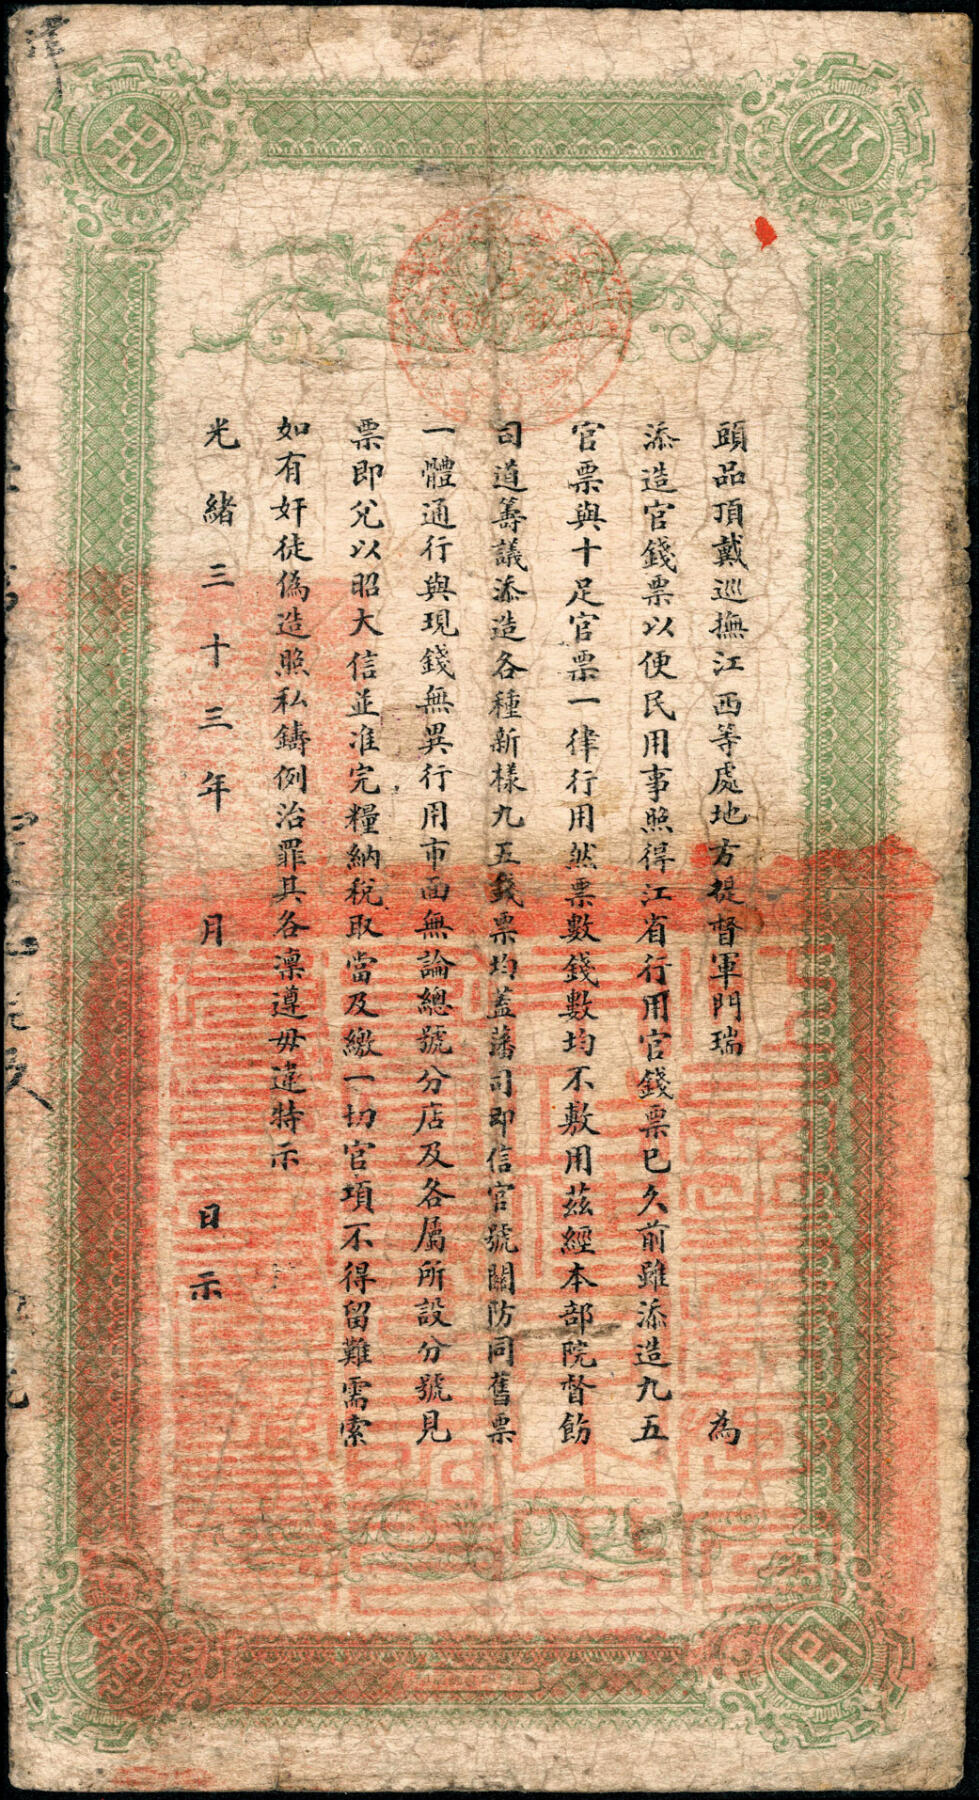 頭品頂戴巡撫江西等處地方提督軍門瑞　為
添造官錢票以便民用事照得江省行用官錢票已久前雖添造九五
官票與十足官票一律行用然票數錢數均不敷用茲經本部院督飭
司道籌議添造各種新樣九五錢票均蓋藩司卽信官號關防同舊票
一體通行與現錢無異行用市面無論總號分店及各屬所設分號見
票即兌以昭大信並准完糧納稅取當及繳一切官項不得留難需索
如有奸徒偽造照私鑄例治罪其各凜遵毋違特示
光緒三十三年　月　日示
江
西
官